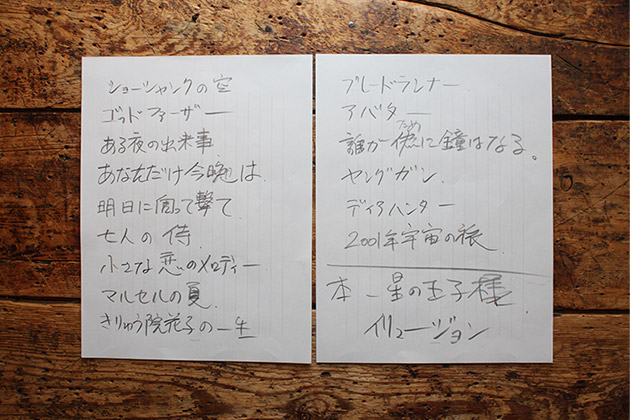 ショーシャンクの空
ゴッドファーザー
ある夜の出来事
あなただけ今晩は
明日に向って撃て
七人の侍
小さな恋のメロディー
マルセルの夏
きりゅう院花子の一生
ブレードランナー
アバター
ために
誰が為に鐘はなる。
ヤングガン
ディアハンター
2001年宇宙の旅
本 星の王子様
イリュージョン